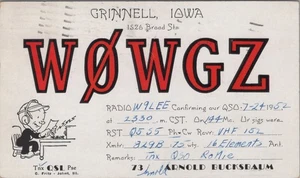 GRINNELL, IOWA
1526 Broad St.
WØWGZ
RADIO W9LEE Confirming our QSO 7-24 1952
at 2330 m. CST. On 144 Mc. Ur sigs were
RST Q5 S5 Ph Cw Recvr. VHF 152
Xmtr. 829B 75 wts. 16 Elements Ant.
Remarks: Tnx QSO
73 ARNOLD BUCKSBAUM
Tnx QSL Pse